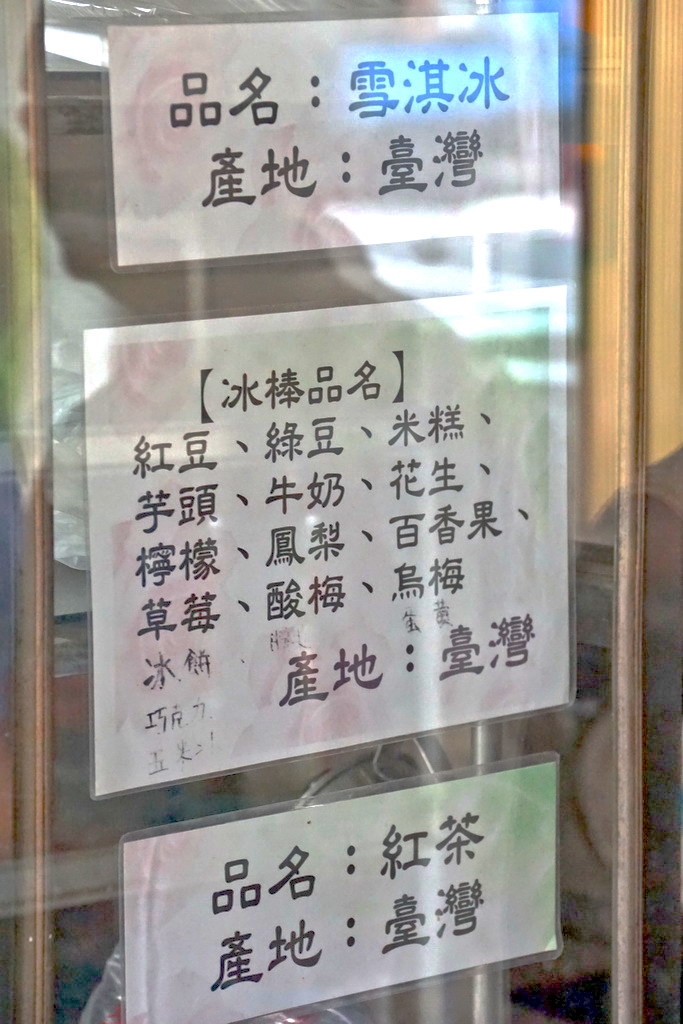 品名：雪淇冰
產地：臺灣
【冰棒品名】
紅豆、綠豆、米糕、
芋頭、牛奶、花生、
檸檬、鳳梨、百香果、
草莓、酸梅、烏梅
蛋黃
冰餅、
產地：臺灣
巧克力
品名：紅茶
產地：臺灣